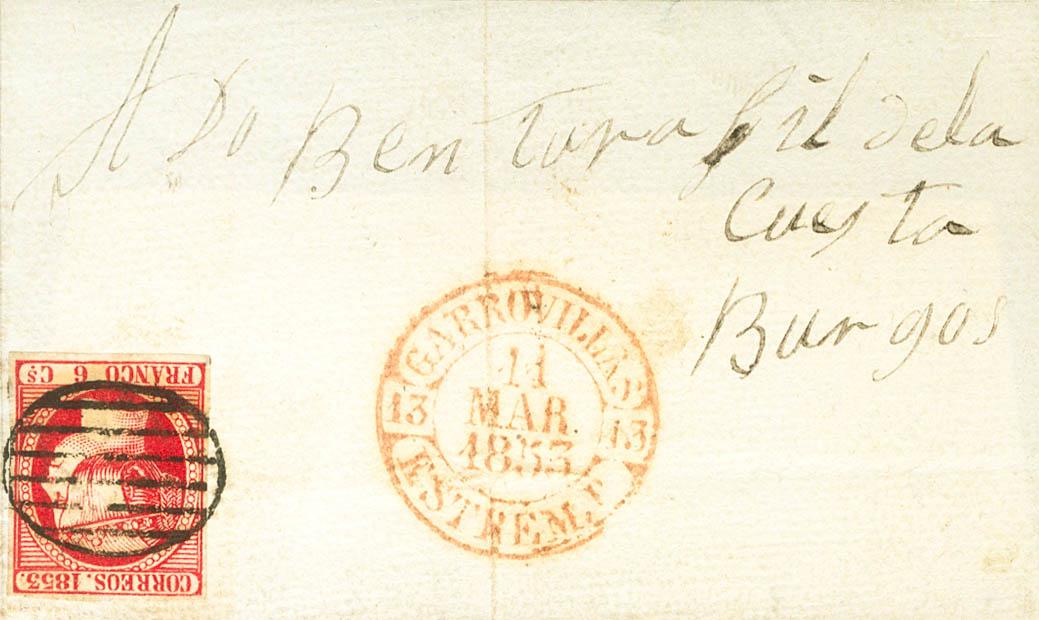 A Dn Bentura Gil dela
Cuesta
Burgos
GARROVILLAS
11
MAR.
1853
13 13
ESTREM.A
FRANCO 6 Cs
CORREOS. 1853.